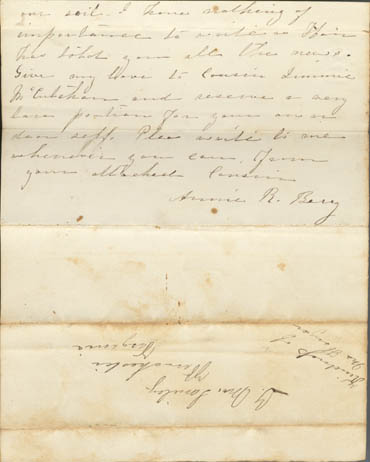 our soil. I have nothing of
importance to write as
has told you all the news.
Give my love to Cousin Jimmie
McCutchan and reserve a very
large portion for your own
dear self. Pleas write to me
whenever you can, from
your attached Cousin
Annie R. Berry
Winchester
Virginia